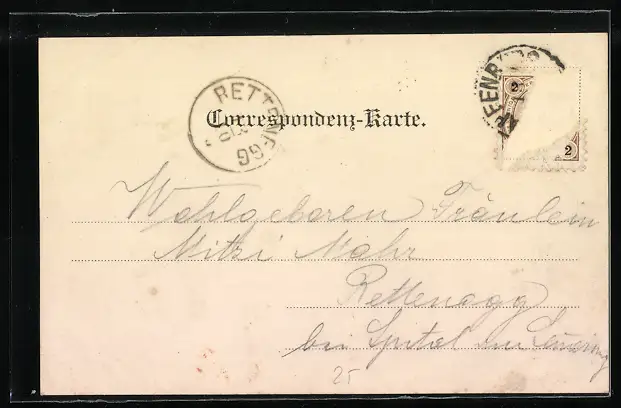 RETTENEGG
Correspondenz-Karte.
2
2
Wohlgeboren Fräulein
Mitzi Mahr
Rettenegg
bei Spital am
25